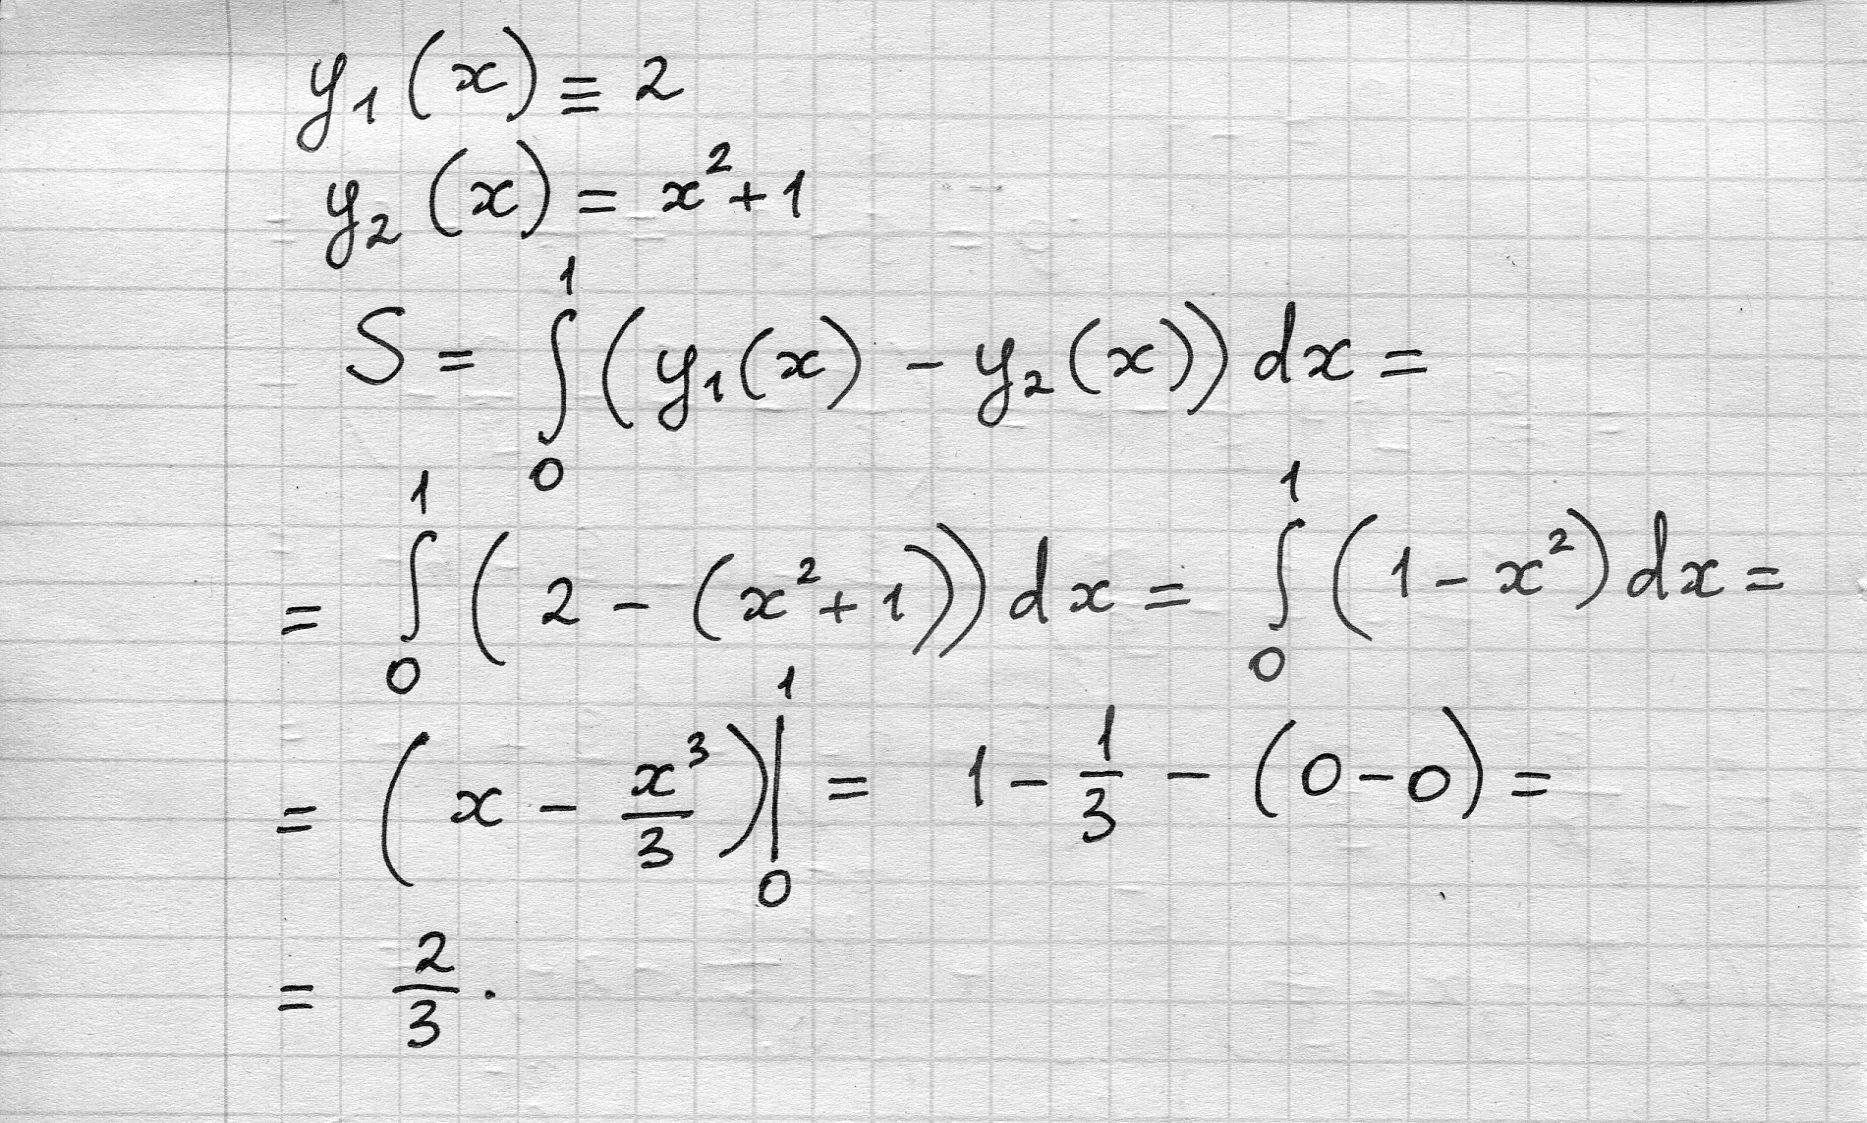 y₁(x) ≡ 2
y₂(x) = x² + 1
S = ∫₀¹ (y₁(x) - y₂(x)) dx =
= ∫₀¹ (2 - (x² + 1)) dx = ∫₀¹ (1 - x²) dx =
= (x - x³/3)|₀¹ = 1 - 1/3 - (0 - 0) =
= 2/3.